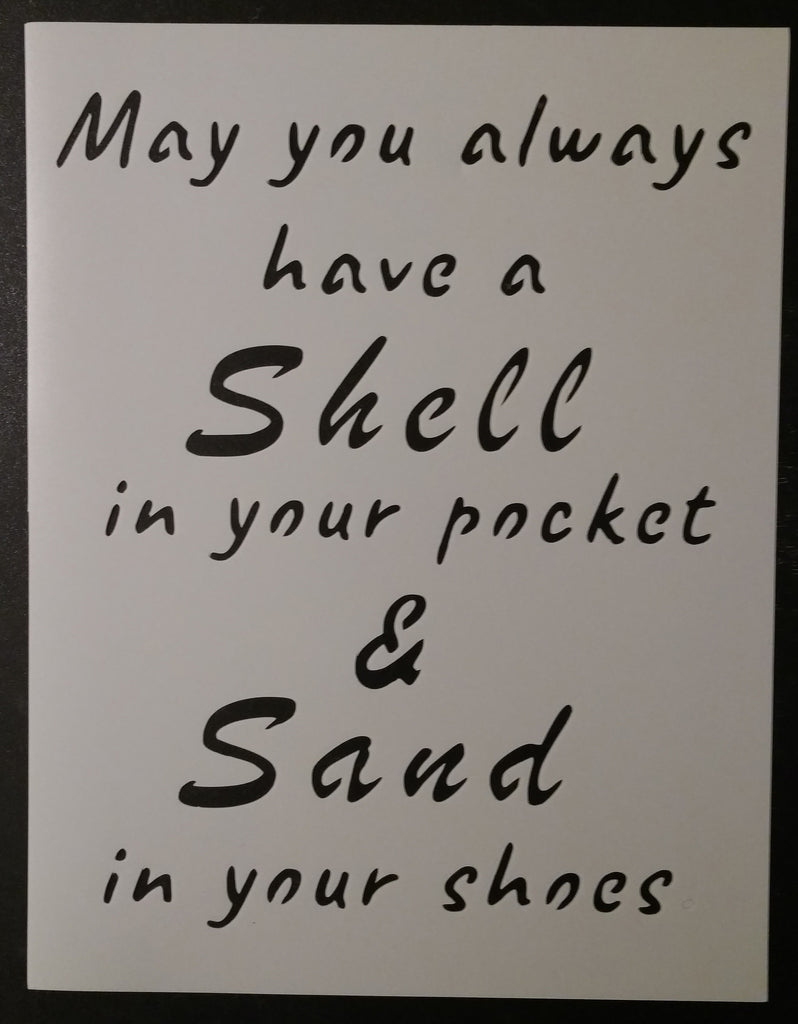 May you always
have a
Shell
in your pocket
&
Sand
in your shoes